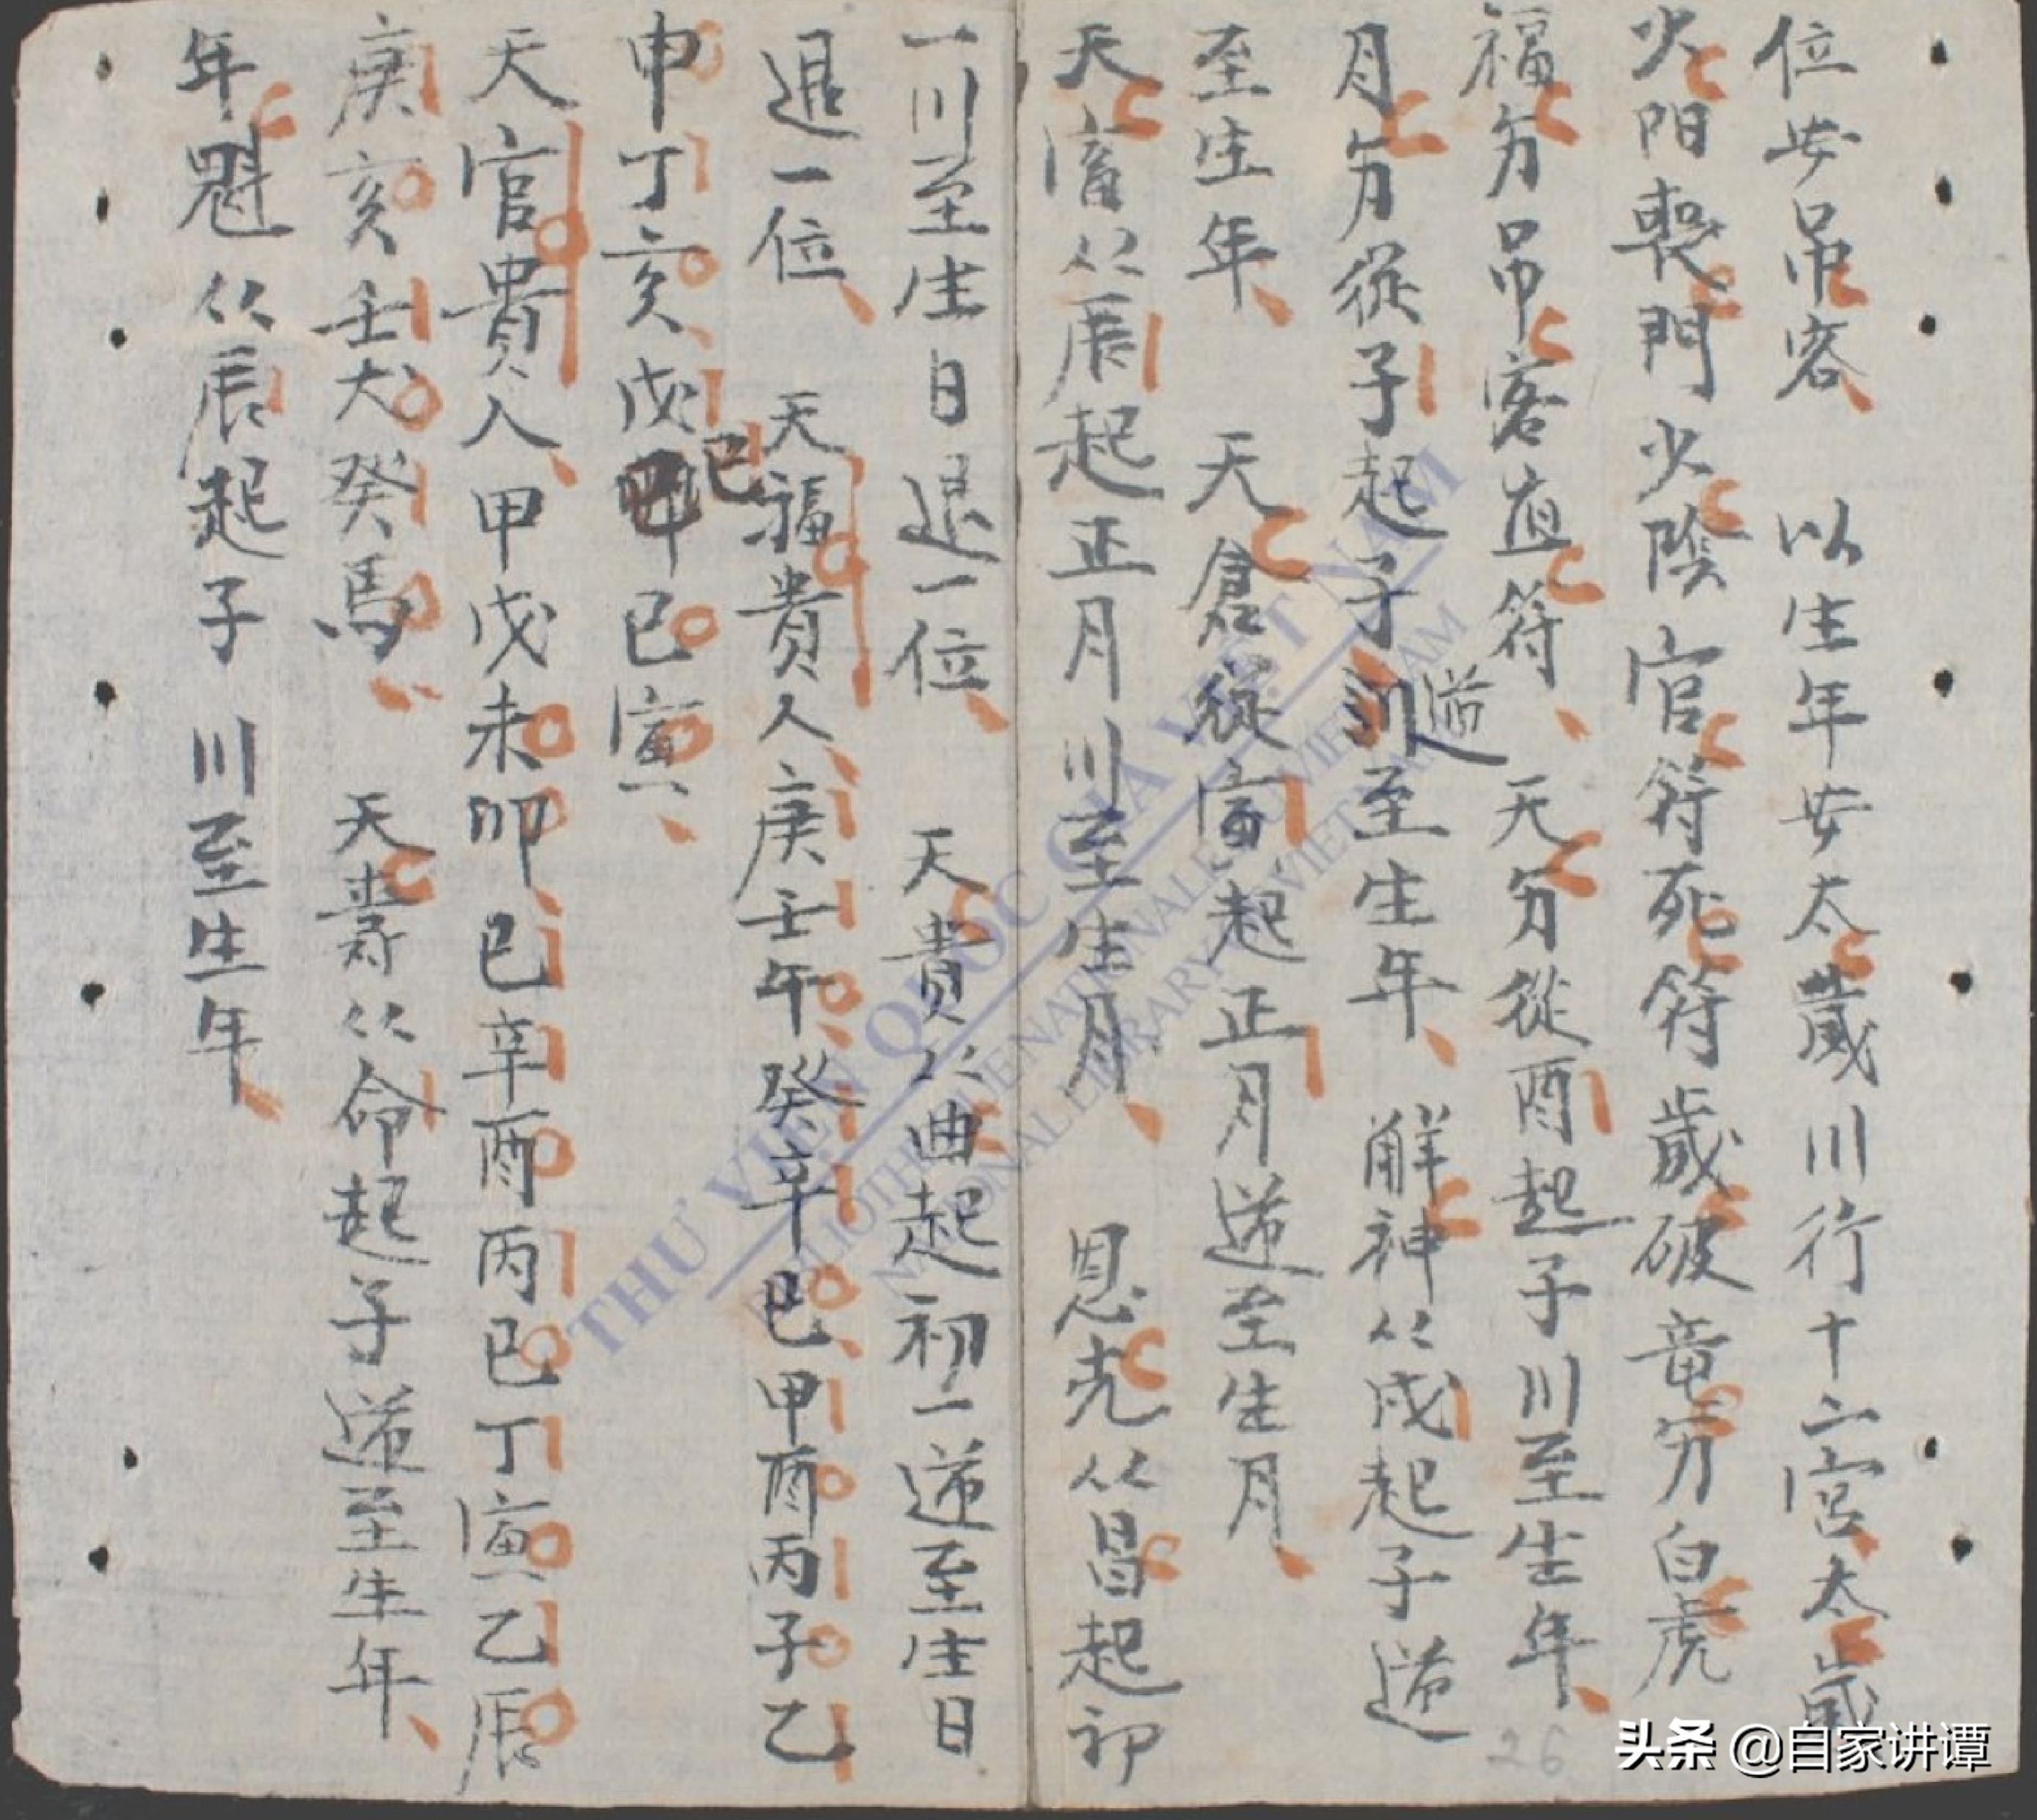 位安吊客 以生年安太歲川行十二宮太歲
少阳喪門少陰官符死符歲破竜夯白虎
福夯吊客直符 天夯從酉起子川至生年
月夯從子起子逆至生年 解神从戌起子逆
至生年 天倉從寅起正月逆至生月
天寅从辰起正月川至生月 恩光从昌起初
一川至生日退一位 天貴从曲起初一逆至生日
退一位 天福貴人庚壬午癸辛巳甲酉丙子乙
申丁亥戊巳巳寅
天官貴人甲戊未卯已辛酉丙巳丁寅乙辰
庚亥壬犬癸馬 天壽从命起子逆至生年
年魁从辰起子 川至生年
THƯ VIỆN QUỐC GIA VIỆT NAM
26
头条 @自家讲谭